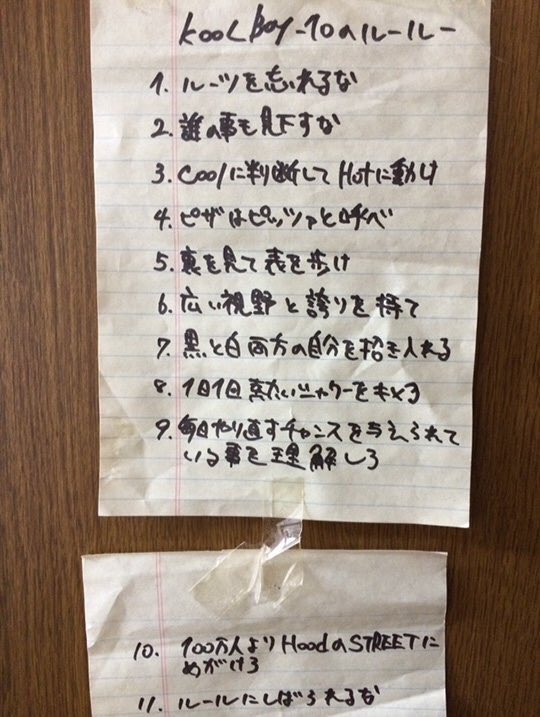 KOOL Boy-10のルールー
1. ルーツを忘れるな
2. 誰の事も見下すな
3. Coolに判断してHotに動け
4. ピザはピッツァと呼べ
5. 裏を見て表を歩け
6. 広い視野と誇りを持て
7. 黒と白両方の自分を招き入れる
8. 1日1回熱いシャワーをキメろ
9. 毎日やり直すチャンスを与えられて
いる事を理解しろ
10. 100万人よりHoodのSTREETに
めがけろ
11. ルールにしばられるな